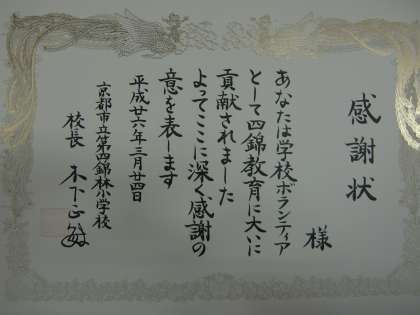 感謝状
様
あなたは学校ボランティア
として四錦教育に大いに
貢献されました
よってここに深く感謝の
意を表します
平成廿六年三月廿四日
京都市立第四錦林小学校
校長 木下正敏